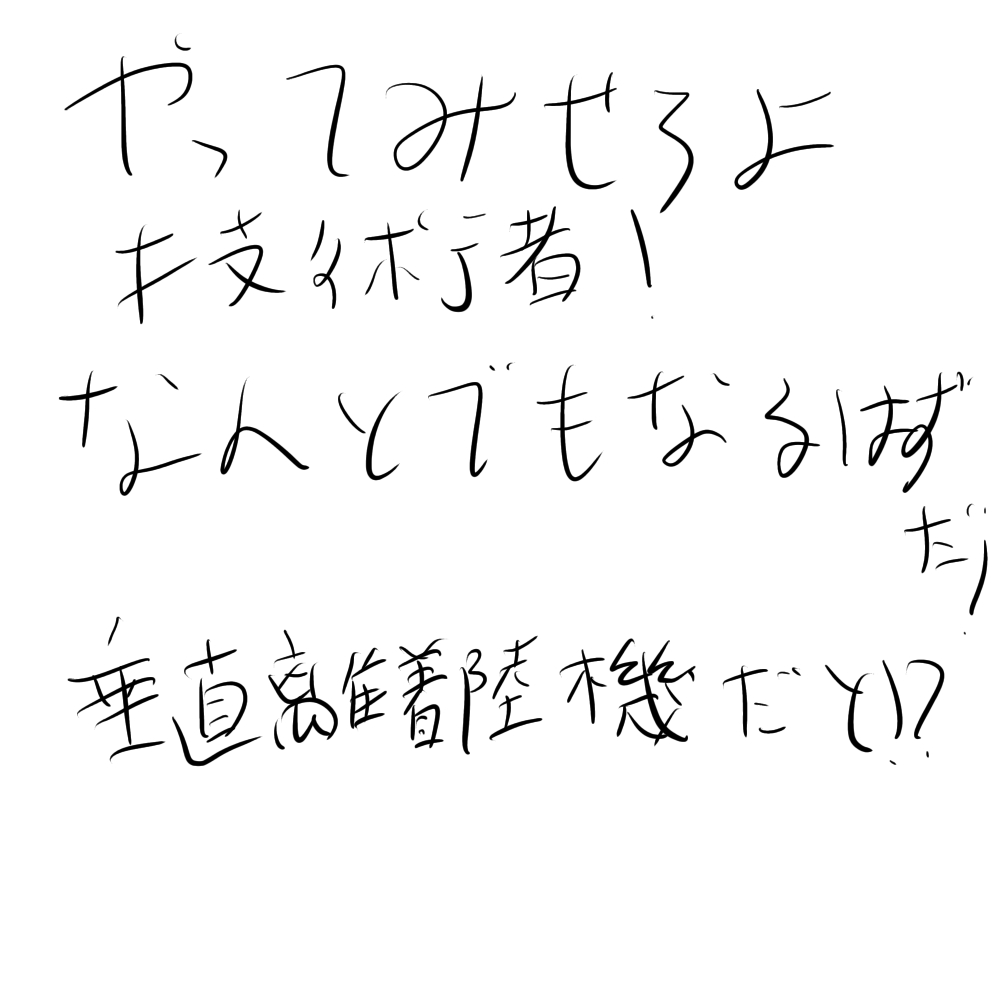 やってみせろよ
技術者!
なんとでもなるはず
だ!
垂直離着陸機だと!?